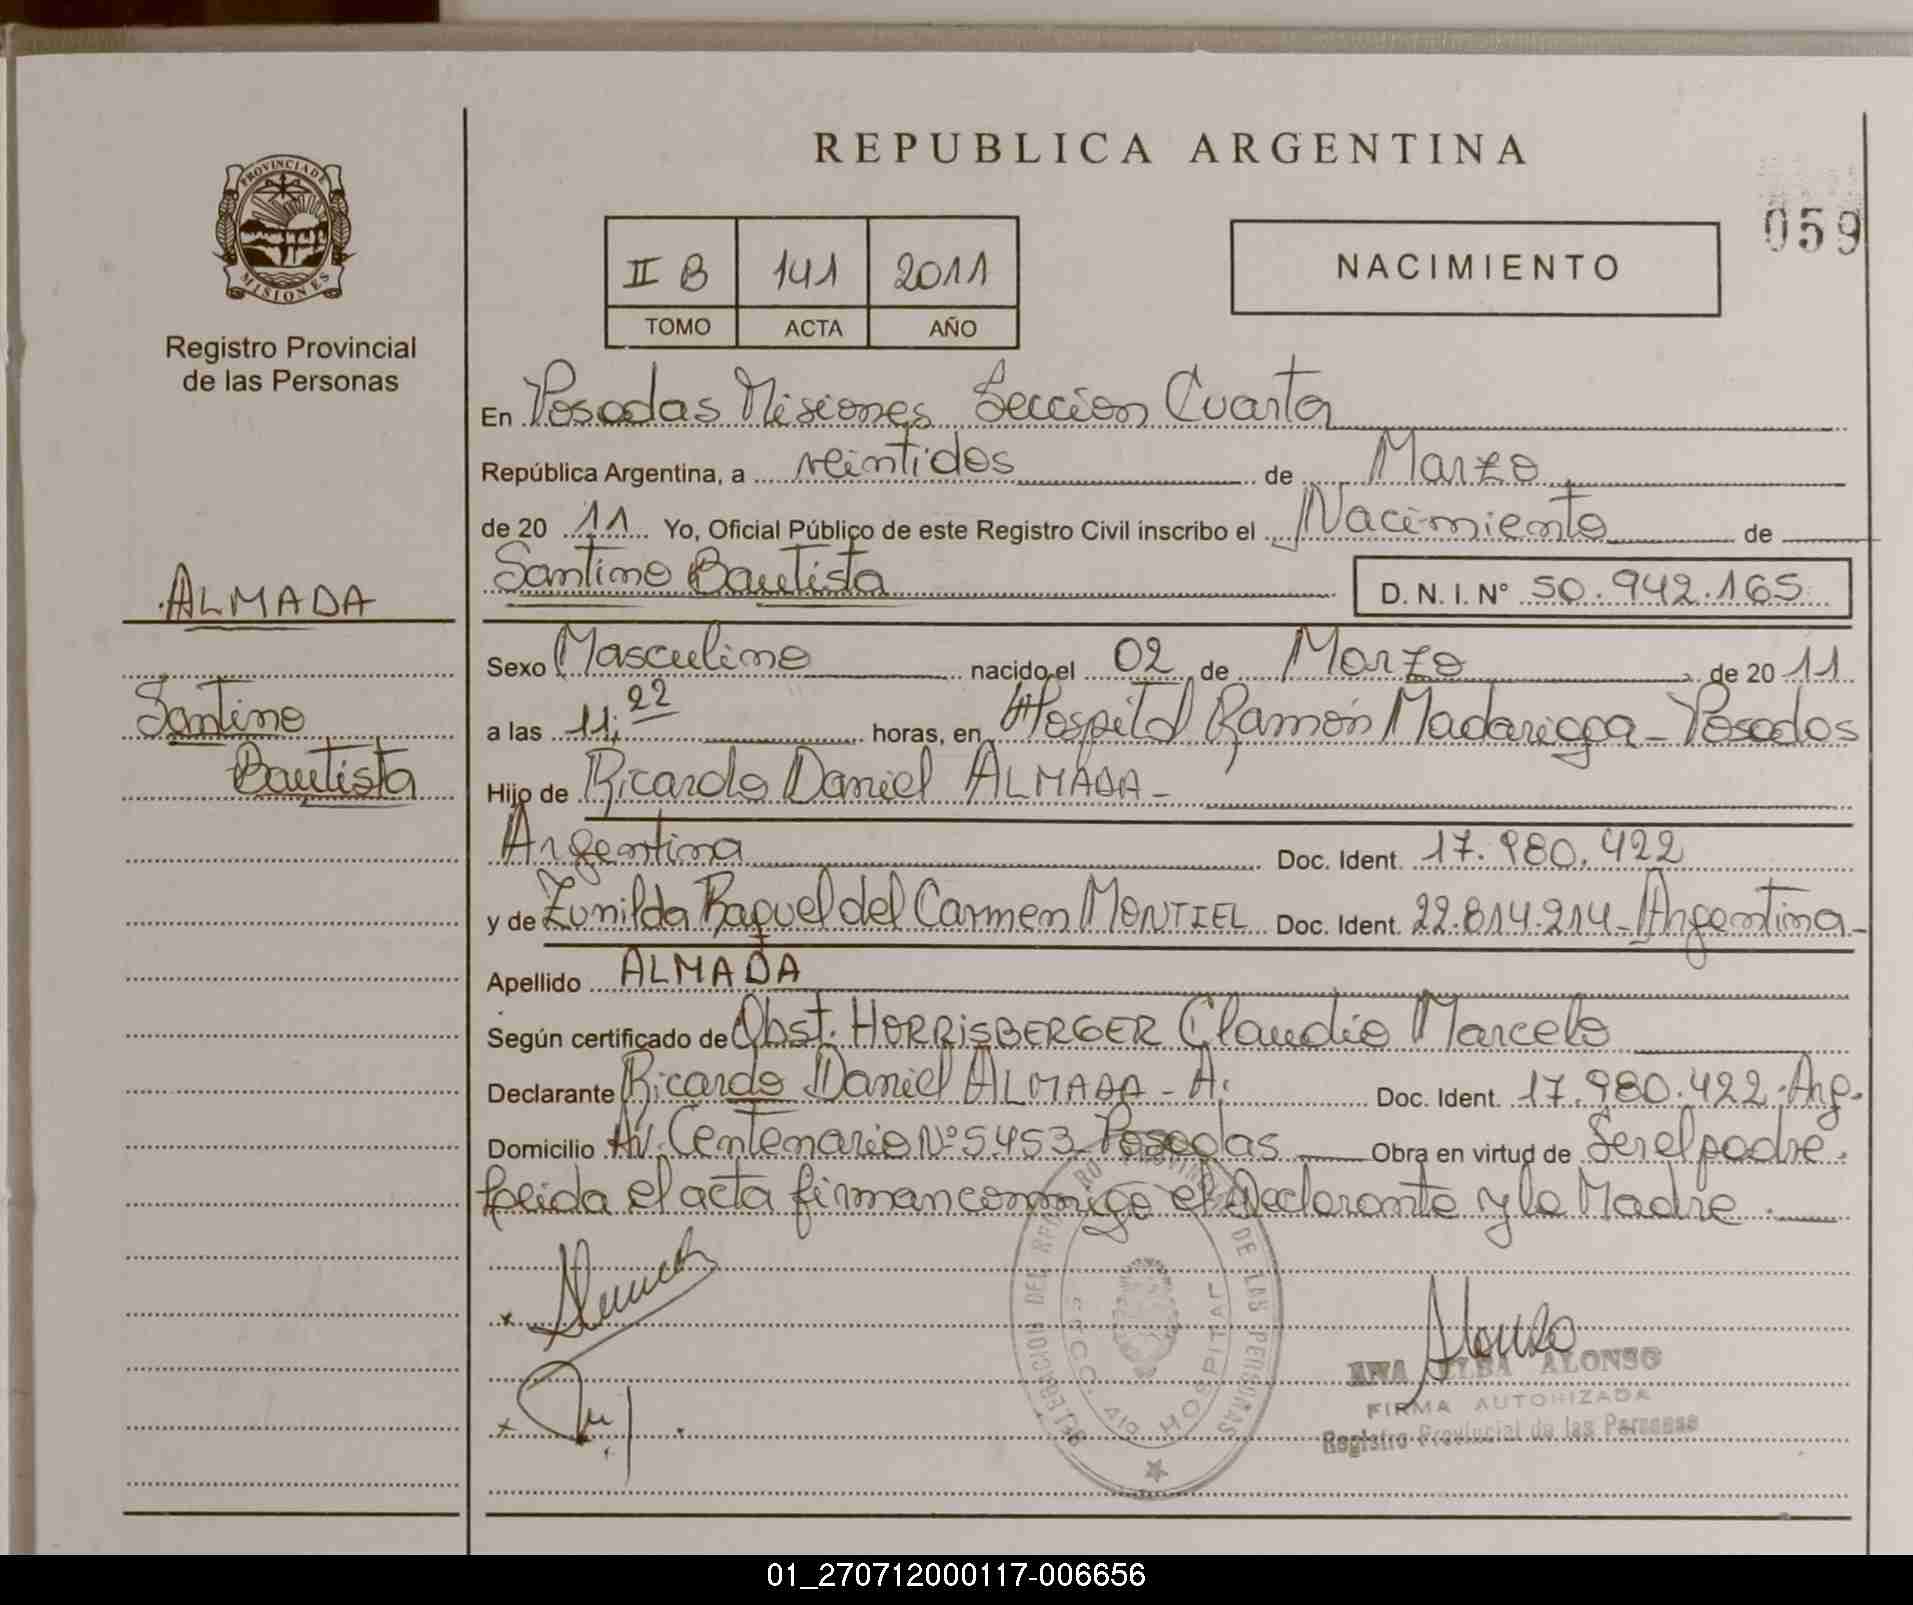 REPUBLICA ARGENTINA
059
PROVINCIA DE
MISIONES
Registro Provincial
de las Personas
II B 141 2011
TOMO ACTA AÑO
NACIMIENTO
En Posadas Misiones Seccion Cuarta
República Argentina, a veintidos de Marzo
de 20 11 Yo, Oficial Público de este Registro Civil inscribo el Nacimiento de
Santino Bautista D. N. I. N° 50.942.165
ALMADA
Santino
Bautista
Sexo Masculino nacido el 02 de Marzo de 20 11
a las 11:22 horas, en Hospital Ramón Madariaga - Posadas
Hijo de Ricardo Daniel ALMADA -
Argentina Doc. Ident. 17.980.422
y de Zunilda Raquel del Carmen MONTIEL Doc. Ident. 22.814.214 - Argentina -
Apellido ALMADA
Según certificado de Obst. HORRISBERGER Claudio Marcelo
Declarante Ricardo Daniel ALMADA - A. Doc. Ident. 17.980.422 Arg.
Domicilio Av. Centenario N° 5453 Posadas Obra en virtud de Ser el padre.
leida el acta firman conmigo el Declarante y la Madre
DE LAS PERSONAS
HOSPITAL
Alonso
ANA ELBA ALONSO
FIRMA AUTORIZADA
Registro Provincial de las Personas
01_270712000117-006656